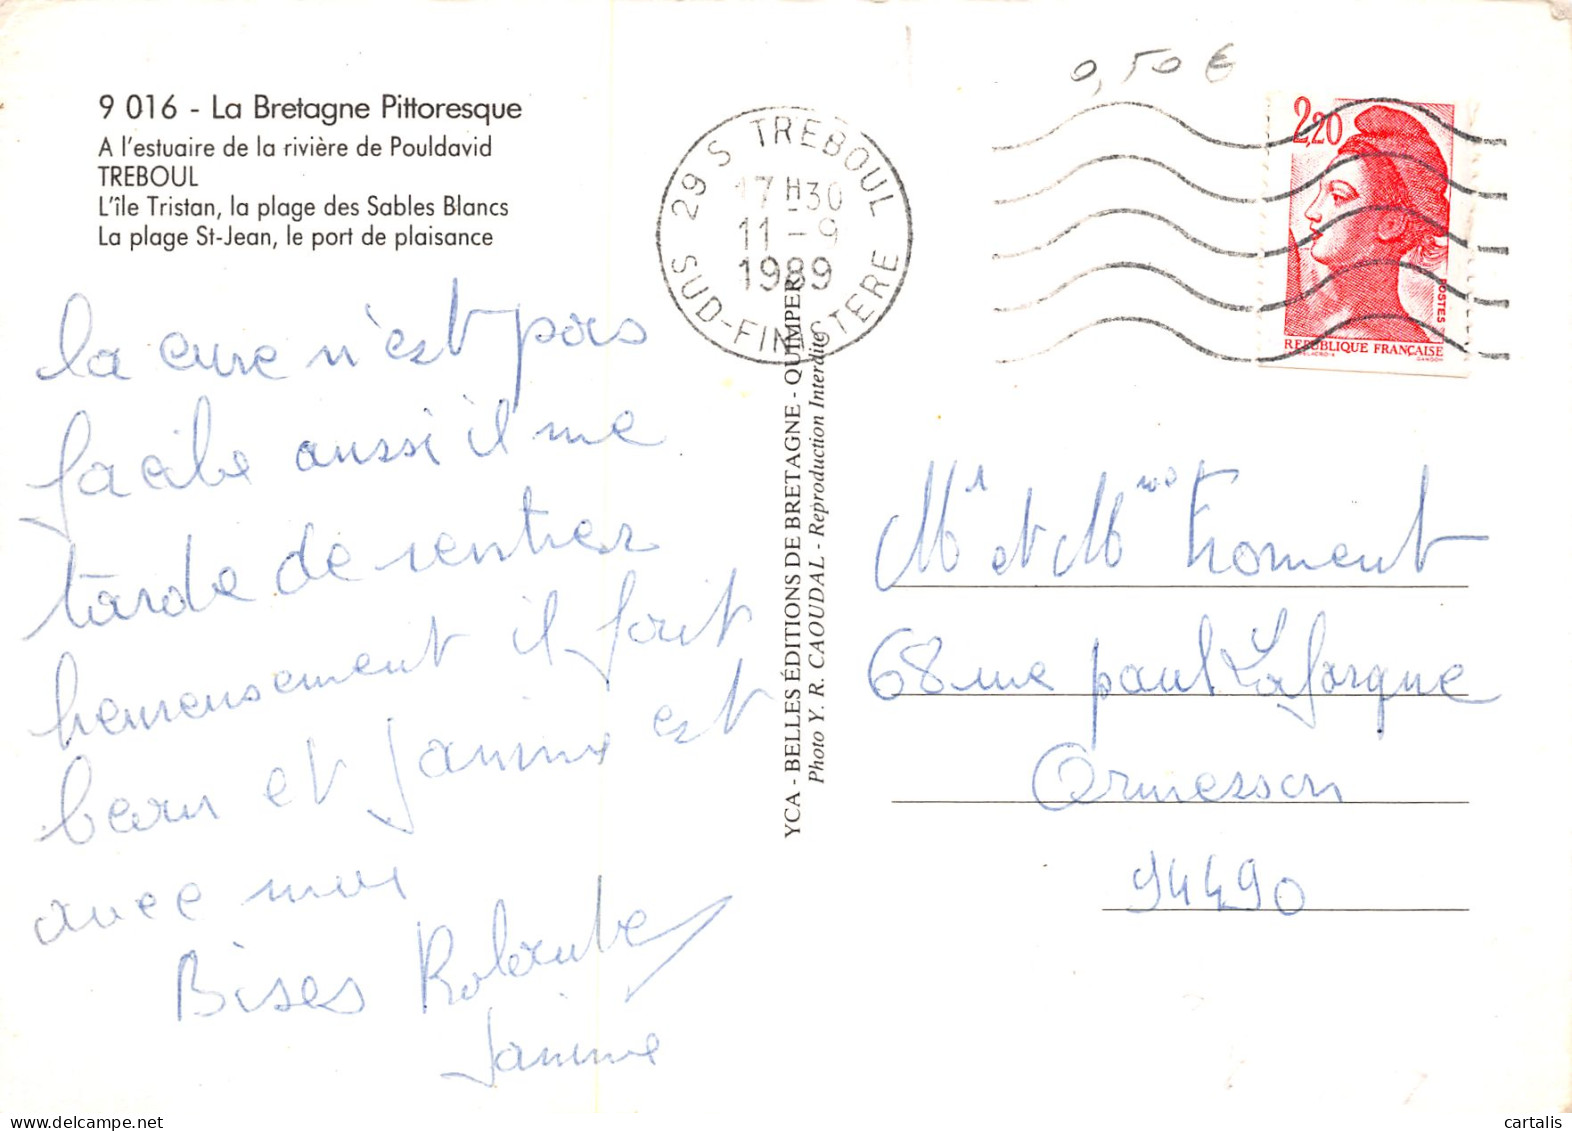 0,50€
9 016 - La Bretagne Pittoresque
A l'estuaire de la rivière de Pouldavid
TREBOUL
L'île Tristan, la plage des Sables Blancs
La plage St-Jean, le port de plaisance
29 S TREBOUL
17 H 30
11 - 9
1989
SUD-FINISTERE
2,20
POSTES
REPUBLIQUE FRANÇAISE
la cure n'est pas
facile aussi il me
tarde de rentrer
heureusement il fait
beau et Janine est
avec moi
Bises Rolande
Janine
YCA - BELLES ÉDITIONS DE BRETAGNE - QUIMPER
Photo Y. R. CAOUDAL - Reproduction Interdite
Mr et Mme Froment
68 rue paul Lafargue
Ormesson
94490
cartalis